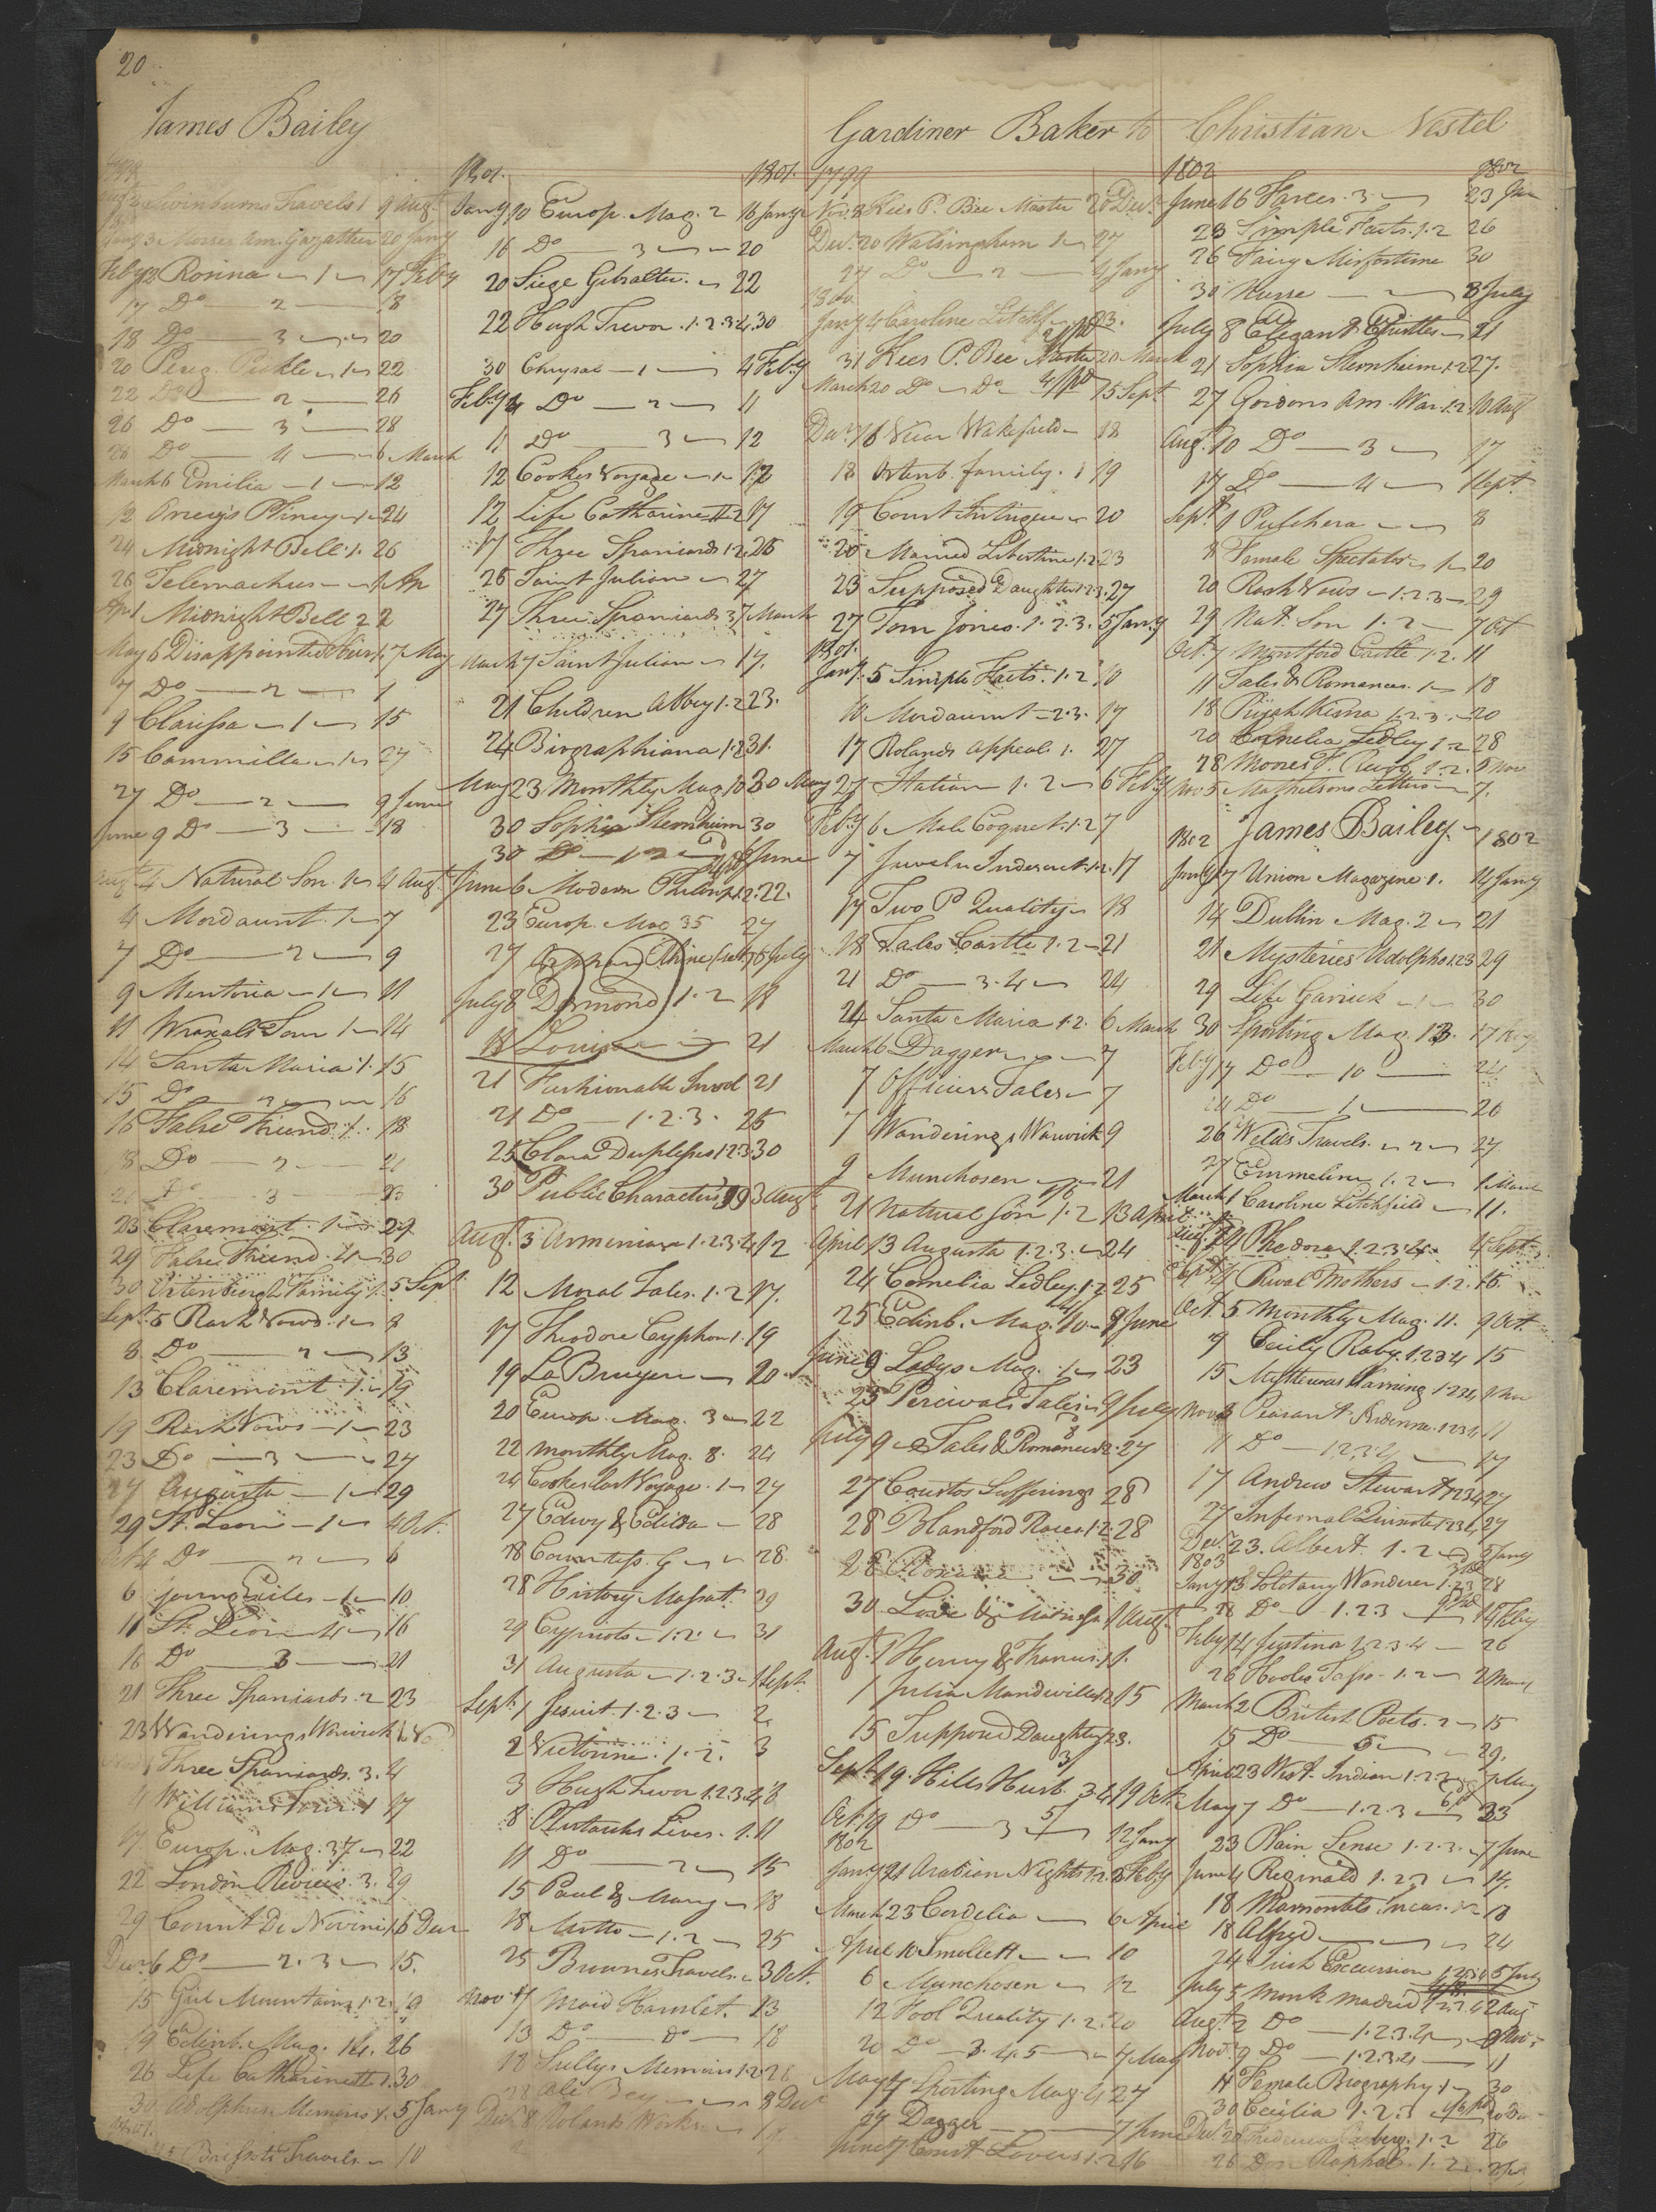 20
James Bailey
Swinburns Travels 1 9 Augt
3 Morses Am. Gazatteer 20 Jany
Feby 12 Rosina 1 17 Feby
17 Do 2 18
18 Do 3 20
20 Pereg. Pickle 1 22
22 Do 2 26
26 Do 3 28
28 Do 4 6 March
March 6 Emilia 1 12
12 Orrery's Pliney 1 24
24 Midnight Bell 1. 26
26 Telemachus 1 Ap
Apl 1 Midnight Bell 2 2
May 6 Disappointed Heir 1 7 May
7 Do 2 9
9 Clarissa 1 15
15 Cammilla 1 27
27 Do 2 9 June
June 9 Do 3 18
Augt 4 Natural Son 1 4 Augt
4 Mordaunt 1 7
7 Do 2 9
9 Mentoria 1 11
11 Wraxals Tour 1 14
14 Santa Maria 1. 15
15 Do 2 16
16 False Friend 1. 18
18 Do 2 21
21 Do 3 23
23 Claremont 1 29
29 False Friend 4 30
30 Ortenburgh Family 1. 5 Sept
Sept 5 Rash Vows 1 8
8 Do 2 13
13 Claremont 1 19
19 Rash Vows 1 23
23 Do 3 27
27 Augusta 1 29
29 St. Leon 1 4 Oct.
Oct 4 Do 2 6
6 young Exiles 1 10
11 St. Leon 4 16
16 Do 3 21
21 Three Spaniards 2 23
23 Wanderings Warwick 1 Nov
1 Three Spaniards 3. 4
4 Williams Tour 1 17
17 Europ. Mag. 37 22
22 London Review 3. 29
29 Count De Novini 1 6 Decr
Decr 6 Do 2.3 15.
15 Girl Mountains 1.2. 19
19 Edinb. Mag. 14. 26
26 Life Catharine II 1. 30
30 Adolphus Memoirs 1. 5 Jany
1801.
5 Brissots Travels 10
1801. 1801.
Jany 10 Europ. Mag. 2 16 Jany
16 Do 3 20
20 Siege Gibralter 22
22 Hugh Trevor 1.2.3.4. 30
30 Chrysal 1 4 Feby
Feby 4 Do 2 11
11 Do 3 12
12 Cookes Voyage 1 12
12 Life Catharine II 2 17
17 Three Spaniards 1.2. 26
26 Saint Julian 27
27 Three Spaniards 3 7 March
March 7 Saint Julian 17.
21 Children Abbey 1.2 23.
24 Biographiana 1.2 31.
May 23 Monthly Mag. 10 30 May
30 Sophia Sternheim 30
30 Do 1.2 6 June
June 6 Modern Philosop 1.2. 22.
23 Europ. Mag 35 27
27 Orphan 6 July
July 8 Desmond 1.2 18
18 Louisa 21
21 Fashionable Invol 21
21 Do 1.2.3. 25
25 Clara Duplessis 1.2.3. 30
30 Public Characters 99 3 Augt
Augt 3 Armenian 1.2.3.4 12
12 Moral Tales 1.2 17.
17 Theodore Cyphon 1. 19
19 La Bruyere 20
20 Europ. Mag. 3 22
22 Monthly Mag. 8. 24
24 Cookes last Voyage 1 27
27 Edwy & Edilda 28
28 Countess G 28.
28 History Massat. 29
29 Cypriots 1.2. 31
31 Augusta 1.2.3 1 Sept.
Sept. 1 Jesuit 1.2.3 2
2 Victorine 1.2. 3
3 Hugh Trevor 1.2.3.4 8
8 Plutarchs Lives 1. 11
11 Do 2 15
15 Paul & Mary 18
18 Motto 1.2 25
25 Brownes Travels 3 Oct.
Nov 11 Maid Hamlet 13
13 Do do 18
18 Sullys Memoirs 1.2 28
28 Ali Bey 8 Decr
Decr 8 Rolands Works
Gardiner Baker to
1799
Nov. 8 Kees P. Bee Master 20 Decr
Decr 20 Walsingham 1 27
27 Do 2 4 Jany
1800
Jany 4 Caroline Litchf. 23.
31 Kees P. Bee Master 20 March
March 20 Do Do 15 Sept
Decr 16 Vicar Wakefield 18
18 Ortenb. family. 1 19
19 Court Intrigue 20
20 Married Libertine 1.2 23
23 Supposed Daughter 1.2.3. 27
27 Tom Jones 1.2.3. 5 Jany
1801.
Jany 5 Simple Facts 1.2 10
10 Mordaunt 2.3. 17
17 Rolands Appeal 1. 27
27 Italian 1.2 6 Feby
Feby 6 Male Coquet. 1.2 7
7 Juvenile Indiscret. 1.2. 17
17 Two P Quality 18
18 Tales Castle 1.2 21
21 Do 3.4 24
24 Santa Maria 1.2. 6 March
March 6 Dagger 7
7 Officers Tales 7
7 Wanderings Warwick 9
9 Munchosen 21
21 Natural Son 1.2 13 April
April 13 Augusta 1.2.3. 24
24 Cornelia Sedley 1.2 25
25 Edinb. Mag. 9 June
June 9 Ladys Mag. 1 23
23 Percivals Tales 9 July
July 9 Tales & Romances 2. 27
27 Coustos Sufferings 28
28 Blandford Races 1.2. 28
28 30
30 Love & Madness 1 Augt
Augt 1 Henry & Frances 1. 1.
1 Julia Mandeville 1.2 15
15 Supposed Daughter 23.
Sept 19. Hills Husb. 3.4 19 Oct.
Oct 19 Do 3 12 Jany
1802
Jany 21 Arabian Nights 1.2. 8 Feby
March 23 Cordelia 6 April
April 10 Smollett 10
6 Munchosen 12
12 Fool Quality 1.2. 20
20 Do 3.4.5 7 May
May 7 Sporting Mag. 4 27
27 Dagger 7 June
June 7 Court Lovers 1.2 16
Christian Nestel
1802 1802
June 16 Farces 3 23 Jun
23 Simple Facts 1.2 26
26 Fairy Misfortune 30
30 Nurse 8 July
July 8 Elegant Epistles 21
21 Sophia Sternheim 1.2 27.
27 Gordons Am. War 1.2 10 Augt
Augt. 10 Do 3 17
17 Do 4 1 Sept.
Sept 1 Pulchera 8
8 Female Spectator 1 20
20 Rash Vows 1.2.3 29
29 Nat. Son 1.2 7 Oct
Oct. 7 Mountford Castle 1.2. 11
11 Tales & Romances 1 18
18 Rajah Kisna 1.2.3. 20
20 Cornelia Sedley 1.2 28
28 Moores F. 1.2. 5 Nov
Nov 5 Mathesons Letters 7.
James Bailey
1802 1802
Jany 7 Union Magazine 1. 14 Jany
14 Dublin Mag. 2 21
21 Mysteries Udolpho 1.2.3 29
29 Life Garrick 1 30
30 Sporting Mag. 17 Feby
Feby 17 Do 10 24
24 Do 1 26
26 Welds Travels 2 27
27 Emmeline 1.2 1 March
March 1 Caroline Litchfield 11.
Phedora 1.2.3.4. 4 Sept
Sept 4 Rival Mothers 1.2. 16
Oct. 5 Monthly Mag. 11. 9 Oct.
9 Cecily Raby 1.2.3.4 15
15 Mysterious Warning 1.2.3.4 1 Nov
Nov 3 Peasant Ardenne 1.2.3.4 11
11 Do 1.2.3.4 17
17 Andrew Stewart 1.2.3.4 27
27 Infernal Quixote 1.2.3.4 27
Decr 23. Albert 1.2 5 Jany
1803
Jany 13 Solotary Wanderer 1.2.3 28
28 Do 1.2.3 14 Feby
Feby 14 Justina 1.2.3.4 26
26 Hooles Tasso 1.2 2 March
March 2 British Poets 2 15
15 Do 5 29.
April 23 West Indian 1.2 7 May
May 7 Do 1.2.3 23
23 Plain Sense 1.2.3. 7 June
June 4 Reginald 1.2.3 17.
18 Marmontels Incas 1.2 18
18 Alfred 24
24 Irish Excursion 1.2.3.4 5 July
July 5 Monk Madrid 1.2.3.4 2 Aug
Augt. 2 Do 1.2.3.4 9 Nov
Nov. 9 Do 1.2.3.4 11
11 Female Biography 1 30
30 Cecilia 1.2.3
26
26 Don Raphael 1.2.